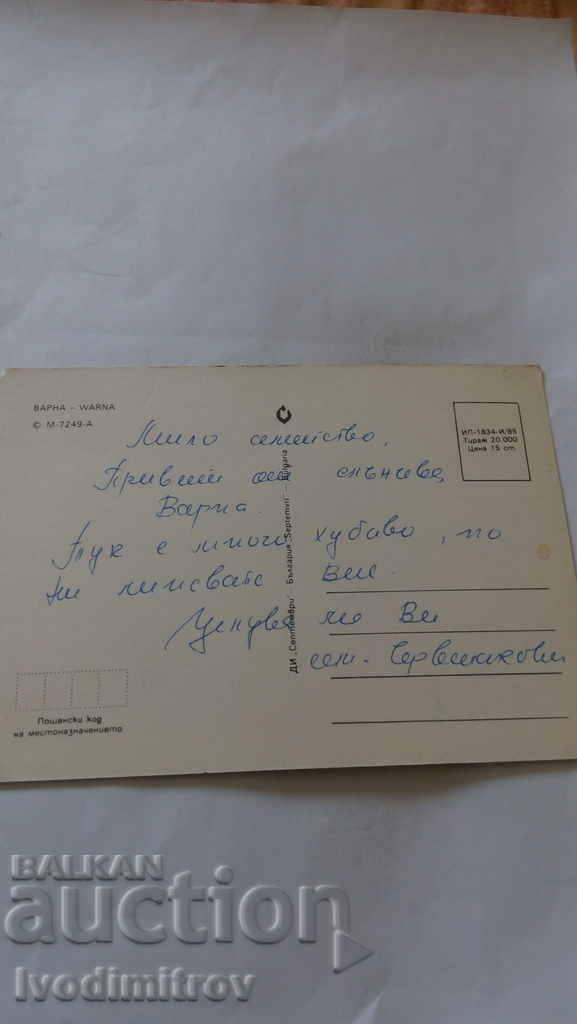 ВАРНА - WARNA
© М-7249-А
ИП-1834-И/85
Тираж 20 000
Цена 15 ст.
Мило семейство,
Привет от слънчева
Варна.
Тук е много хубаво, но
ни липсвате Вие.
Целуваме Ви
сем.
ДИ „Септември" - България "Septemvri" - Bulgaria
Пощенски код
на местоназначението
BALKAN
auction
Ivodimitrov